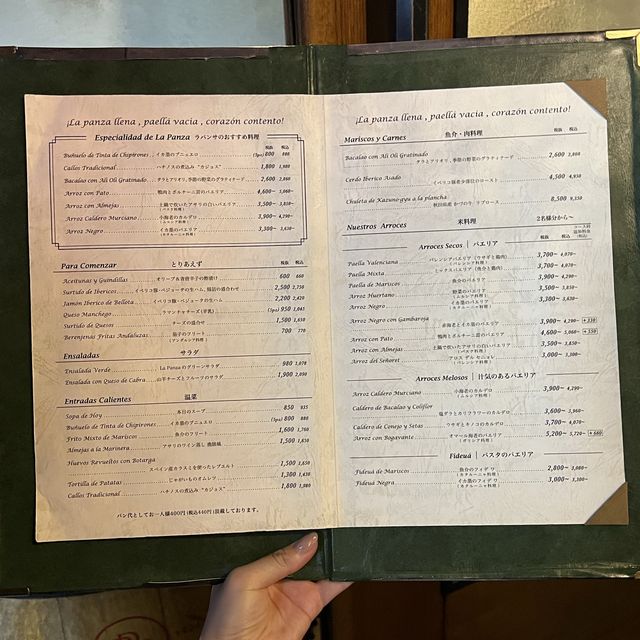 ¡La panza llena , paella vacía , corazón contento!
Especialidad de La Panza ラパンサのおすすめ料理
税抜 税込
Buñuelo de Tinta de Chipirones イカ墨のブニュエロ (3ps) 800 880
Callos Tradicional ハチノスの煮込み "カジョス" 1,800 1,980
Bacalao con Ali Oli Gratinado タラとアリオリ、季節の野菜のグラティナード 2,600 2,860
Arroz con Pato 鴨肉とポルチーニ茸のパエリア 4,600~ 5,060~
Arroz con Almejas 土鍋で炊いたアサリの白いパエリア 3,500~ 3,850~
(バスク料理)
Arroz Caldero Murciano 小海老のカルデロ 3,900~ 4,290~
(ムルシア料理)
Arroz Negro イカ墨のパエリア 3,300~ 3,630~
(カタルーニャ料理)
Para Comenzar とりあえず
税抜 税込
Aceitunas y Guindillas オリーブ&青唐辛子の酢漬け 600 660
Surtido de Ibericos イベリコ豚・ベジョータの生ハム、腸詰の盛合わせ 2,500 2,750
Jamón Iberico de Bellota イベリコ豚・ベジョータの生ハム 2,200 2,420
Queso Manchego ラマンチャチーズ(羊乳) (3ps) 950 1,045
Surtido de Quesos チーズの盛合せ 1,500 1,650
Berenjenas Fritas Andaluzas 茄子のフリート 700 770
(アンダルシア料理)
Ensaladas サラダ
Ensalada Verde La Panza のグリーンサラダ 980 1,078
Ensalada con Queso de Cabra 山羊チーズとフルーツのサラダ 1,900 2,090
Entradas Calientes 温菜
Sopa de Hoy 本日のスープ 850 935
Buñuelo de Tinta de Chipirones イカ墨のブニュエロ (3ps) 800 880
Frito Mixto de Mariscos 魚介のフリート 1,600 1,760
Almejas a la Marinera アサリのワイン蒸し 漁師風 1,500 1,650
Huevos Revueltos con Botarga
スペイン産カラスミを使ったレブエルト 1,500 1,650
Tortilla de Patatas じゃがいものオムレツ 1,300 1,430
Callos Tradicional ハチノスの煮込み "カジョス" 1,800 1,980
パン代としてお一人様400円(税込440円)頂戴しております。
¡La panza llena , paella vacía , corazón contento!
Mariscos y Carnes 魚介・肉料理
税抜 税込
Bacalao con Ali Oli Gratinado 2,600 2,860
タラとアリオリ、季節の野菜のグラティナード
Cerdo Iberico Asado 4,500 4,950
Chuleta de Kazuno-gyu a la plancha 8,500 9,350
秋田県産 かづの牛 リブロース
Nuestros Arroces 米料理 2名様分から~
Arroces Secos | パエリア
税抜 税込
Paella Valenciana バレンシアパエリア (ウサギと鶏肉) 3,700~ 4,070~
(バレンシア料理)
Paella Mixta ミックスパエリア (魚介と鶏肉) 3,700~ 4,070~
Paella de Mariscos 魚介のパエリア 3,900~ 4,290~
Arroz Huertano 野菜のパエリア 3,500~ 3,850~
(ムルシア料理)
Arroz Negro イカ墨のパエリア 3,300~ 3,630~
(カタルーニャ料理)
Arroz Negro con Gambaroja
赤海老とイカ墨のパエリア 3,900~ 4,290~ +330
Arroz con Pato 鴨肉とポルチーニ茸のパエリア 4,600~ 5,060~ +550
Arroz con Almejas 土鍋で炊いたアサリの白いパエリア 3,500~ 3,850~
(バスク料理)
Arroz del Señoret アロス デル セニョレ 3,000~ 3,300~
(バレンシア料理)
Arroces Melosos | 汁気のあるパエリア
Arroz Caldero Murciano 小海老のカルデロ 3,900~ 4,290~
(ムルシア料理)
Caldero de Bacalao y Coliflor
塩ダラとカリフラワーのカルデロ 3,600~ 3,960~
Caldero de Conejo y Setas ウサギとキノコのカルデロ 3,700~ 4,070~
Arroz con Bogavante オマール海老のパエリア 5,200~ 5,720~ +660
(ガリシア料理)
Fideuá | パスタのパエリア
Fideuá de Mariscos 魚介のフィデウア 2,800~ 3,080~
(カタルーニャ料理)
Fideuá Negra イカ墨のフィデウア 3,000~ 3,300~
(カタルーニャ料理)